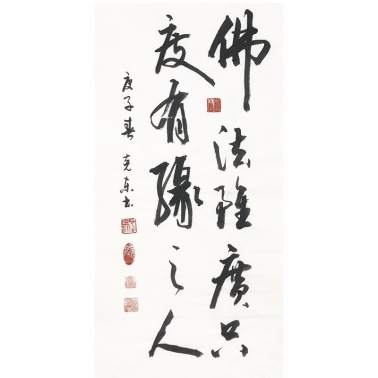 佛法雖廣只
度有緣之人
庚子春 克東書